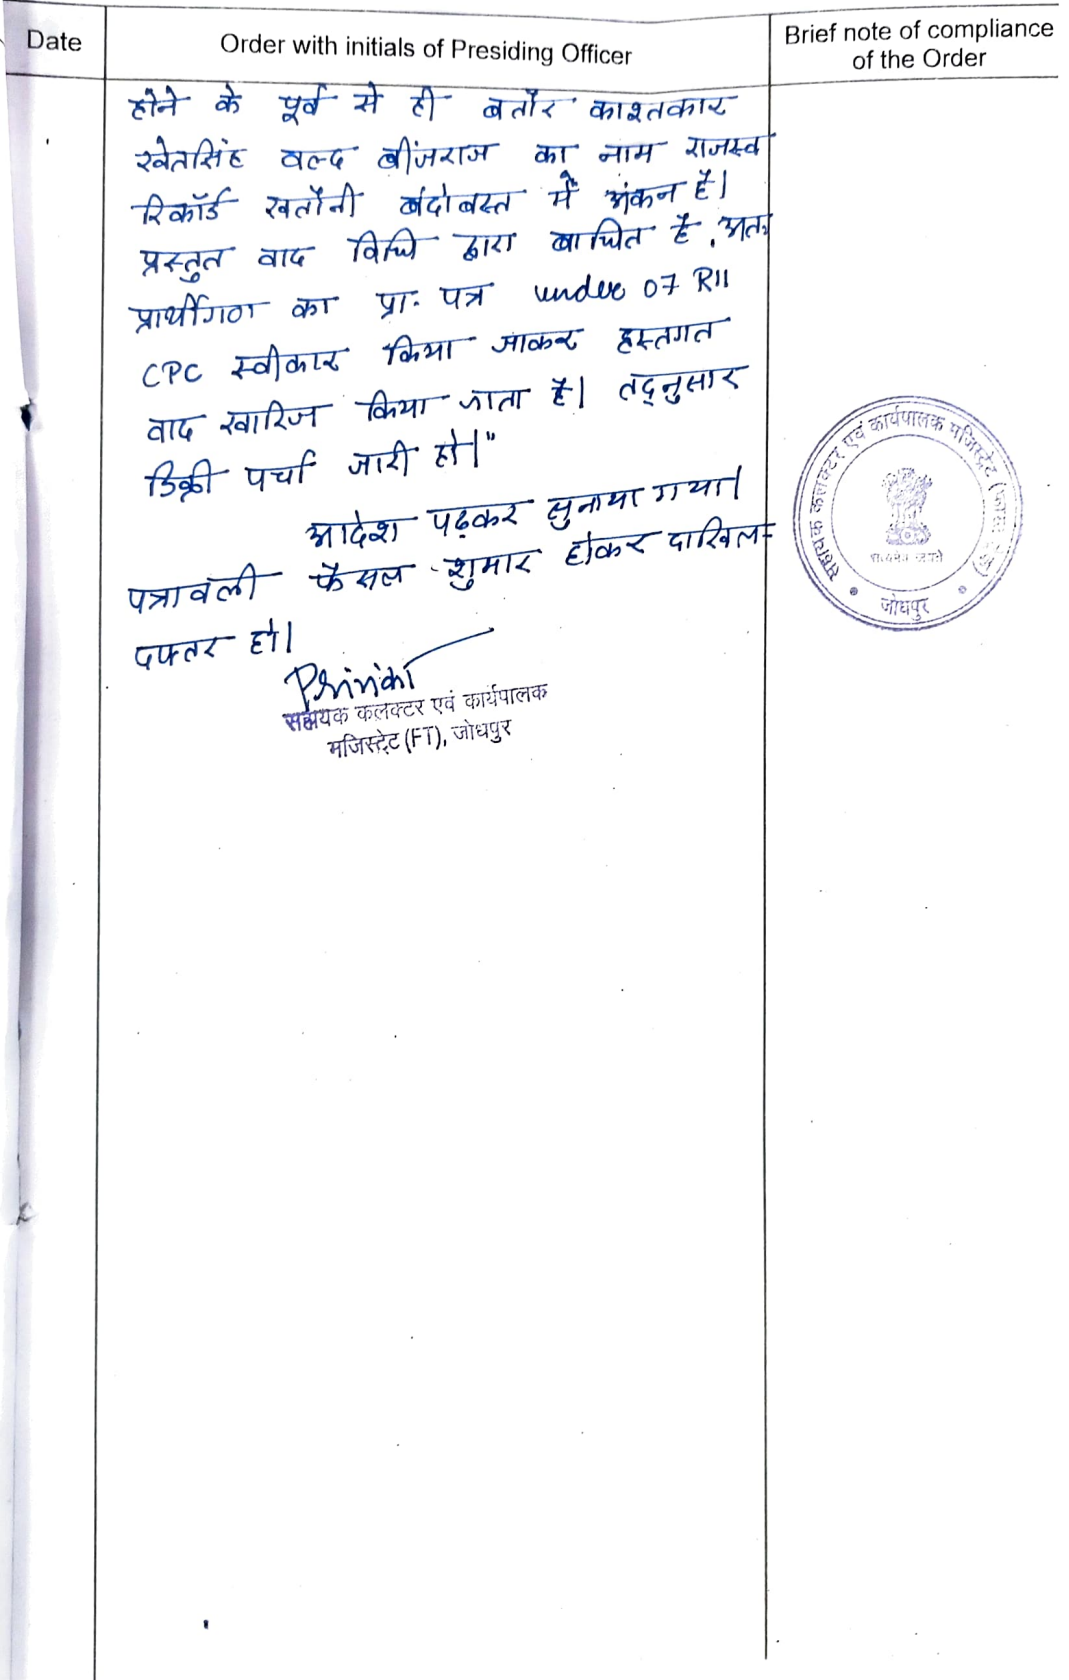 Date
Order with initials of Presiding Officer
Brief note of compliance
of the Order
होने के पूर्व से ही बतौर काश्तकार
खेतसिंह वल्द बींजराज का नाम राजस्व
रिकॉर्ड खतौनी बंदोबस्त में अंकन है।
प्रस्तुत वाद विधि द्वारा बाधित है, अतः
प्रार्थीगण का प्रा. पत्र under 07 R11
CPC स्वीकार किया जाकर हस्तगत
वाद खारिज किया जाता है। तद्नुसार
डिक्री पर्चा जारी हो।"
आदेश पढ़कर सुनाया गया।
पत्रावली फैसल शुमार होकर दाखिल-
दफ्तर हो।
सहायक कलक्टर एवं कार्यपालक
मजिस्ट्रेट (FT), जोधपुर
सहायक कलक्टर एवं कार्यपालक मजिस्ट्रेट
जोधपुर